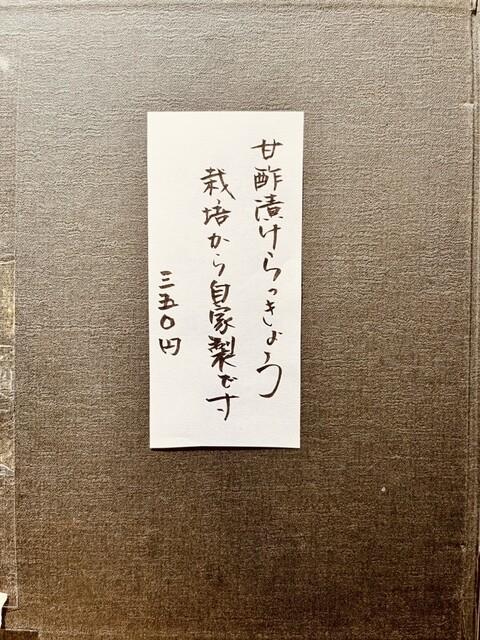 甘酢漬けらっきょう
栽培から自家製です
三五〇円